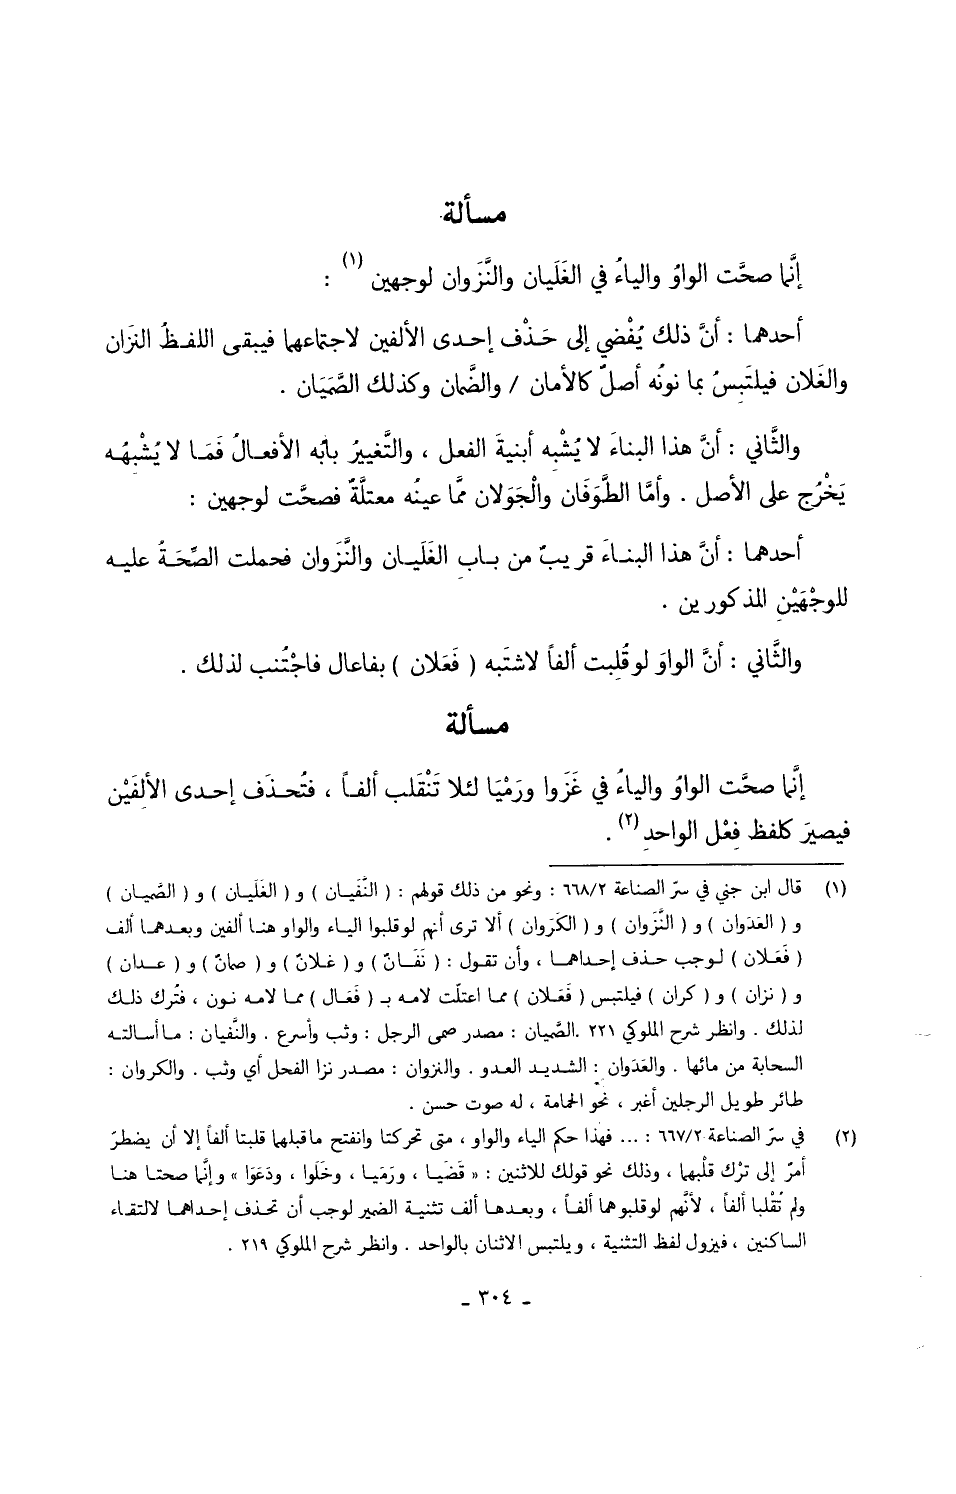 مسألة
إنَّما صحَّت الواوُ والياءُ في الغَلَيان والنَّزَوان لوجهين (١) :
أحدهما : أنَّ ذلك يُفْضي إلى حَذْف إحدى الألفين لاجتماعهما فيبقى اللفظُ النزَان
والغَلان فيلتَبِسُ بما نونُه أصلٌ كالأمان / والضَّمان وكذلك الصَّمَيَان .
والثَّاني : أنَّ هذا البناءَ لا يُشْبِه أبنيةَ الفعل ، والتَّغييرُ بابُه الأفعالُ فَمَا لا يُشْبِهُه
يَخْرُج على الأصل . وأمَّا الطَّوَفَان والْجَوَلان ممَّا عينُه معتلَّةٌ فصحَّت لوجهين :
أحدهما : أنَّ هذا البناءَ قريبٌ من باب الغَلَيان والنَّزَوان فحملت الصِّحَةُ عليه
للوجْهَيْنِ المذكورين .
والثَّاني : أنَّ الواوَ لو قُلِبت ألفاً لاشتَبه ( فَعَلان ) بفاعال فاجْتُنب لذلك .
مسألة
إنَّما صحَّت الواوُ والياءُ في غَزَوا ورَمْيَا لئلا تَنْقَلب ألفاً ، فتُحذَف إحدى الألِفَيْن
فيصيرَ كلفظ فِعْل الواحدِ (٢) .
(١) قال ابن جني في سرّ الصناعة ٦٦٨/٢ : ونحو من ذلك قولهم : ( النَّفَيان ) و ( الغَلَيان ) و ( الصَّميان )
و ( العَدَوان ) و ( النَّزَوان ) و ( الكَرَوان ) ألا ترى أنهم لو قلبوا الياء والواو هنا ألفين وبعدهما ألف
( فَعَلان ) لوجب حذف إحداهما ، وأن تقول : ( نَفَانٌ ) و ( غلانٌ ) و ( صمانٌ ) و ( عدان )
و ( نزان ) و ( كران ) فيلتبس ( فَعَلان ) مما اعتلّت لامه بـ ( فَعَال ) مما لامه نون ، فتُرك ذلك
لذلك . وانظر شرح الملوكي ٢٢١ .الصَّميان : مصدر صمى الرجل : وثب وأسرع . والنَّفيان : ما أسالته
السحابة من مائها . والعَدَوان : الشديد العدو . والنزوان : مصدر نزا الفحل أي وثب . والكروان :
طائر طويل الرجلين أغبر ، نحْو الحمامة ، له صوت حسن .
(٢) في سرّ الصناعة ٦٦٧/٢ : ... فهذا حكم الياء والواو ، متى تحركتا وانفتح ماقبلهما قلبتا ألفاً إلا أن يضطرّ
أمرٌ إلى ترْك قلْبهما ، وذلك نحو قولك للاثنين : « قَضَيا ، ورَمَيا ، وخَلَوا ، ودَعَوَا » وإنَّما صحتا هنا
ولم تُقْلبا ألفاً ، لأنَّهم لو قلبوهما ألفاً ، وبعدها ألف تثنية الضمير لوجب أن تحذف إحداهما لالتقاء
الساكنين ، فيزول لفظ التثنية ، ويلتبس الاثنان بالواحد . وانظر شرح الملوكي ٢١٩ .
ـ ٣٠٤ ـ